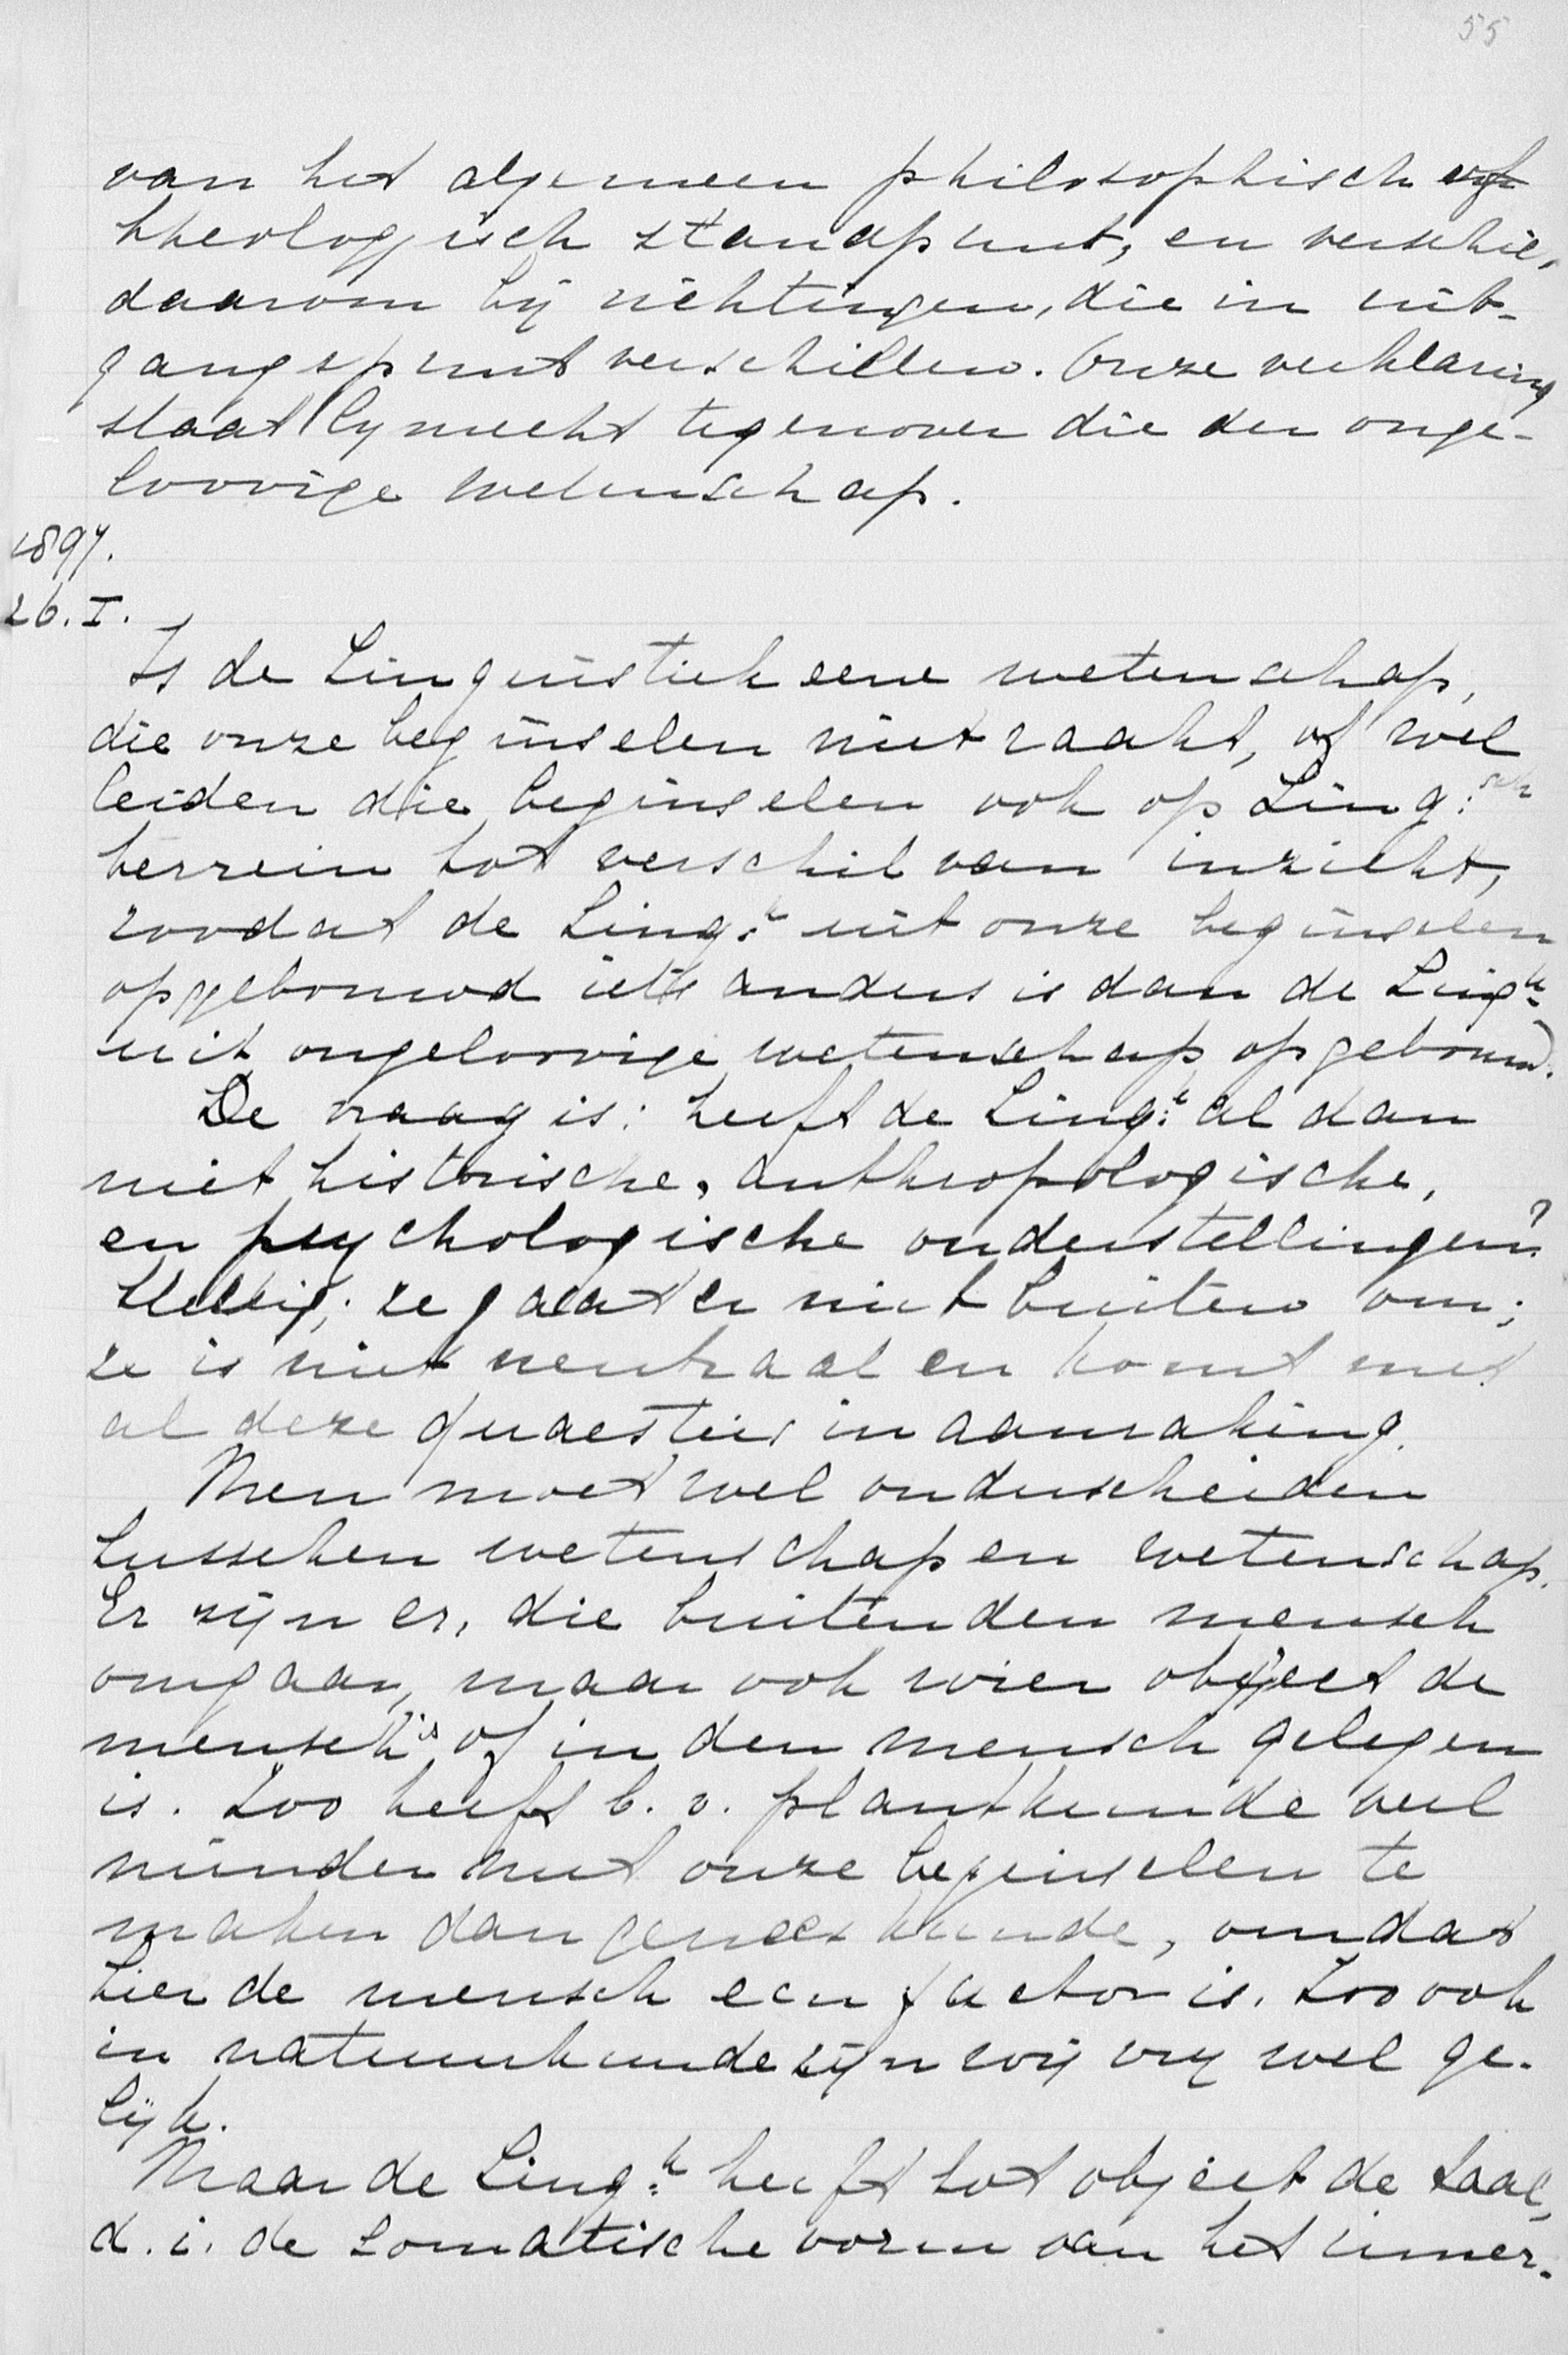 55
van het algemeen philosophisch of
theologisch standpunt, en verschil,
daarom bij richtingen, die in uit-
gangspunt verschillen. Onze verklaring
staat lynrecht tegenover die der onge-
loovige wetenschap.
1897.
26. I.
Is de Linguistiek eene wetenschap,
die onze beginselen niet raakt, of wel
leiden die beginselen ook op Ling:sch
terrein tot verschil van inzicht,
zoodat de Ling:k uit onze beginselen
opgebouwd iets anders is dan de Ling:k
uit ongeloovige wetenschap opgebouwd.
De vraag is: heeft de Ling:k al dan
niet historische, anthropologische,
en psychologische onderstellingen?
Stellig; ze gaat er niet buiten om;
ze is niet neutraal en komt met
al deze quaesties in aanraking.
Men moet wel onderscheiden
tusschen wetenschap en wetenschap.
Er zijn er, die buiten den mensch
omgaan, maar ook wier object de
mensch is, of in den mensch gelegen
is. Zoo heeft b.v. plantkunde veel
minder met onze beginselen te
maken dan geneeskunde, omdat
hier de mensch een factor is. Zoo ook
in natuurkunde zijn wij vrij wel ge-
lijk.
Maar de Ling:k heeft tot object de taal,
d.i. de somatische vorm van het inner-